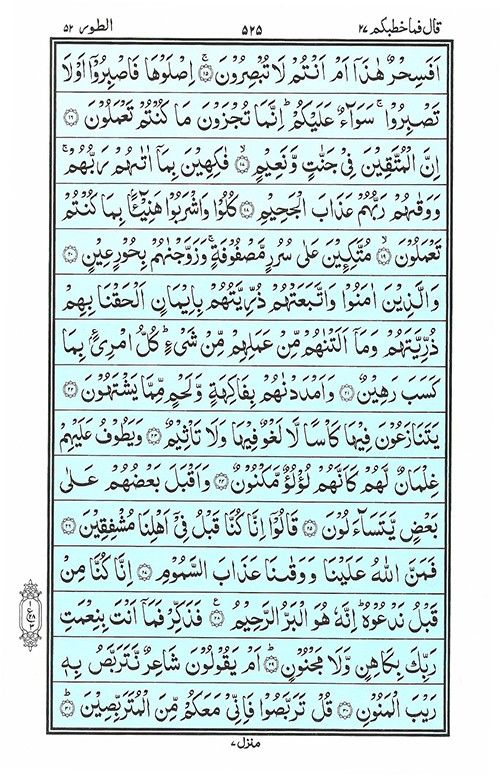 قال فما خطبكم ٢٧ ٥٢٥ الطور ٥٢
اَفَسِحۡرٌ هٰذَاۤ اَمۡ اَنۡتُمۡ لَا تُبۡصِرُوۡنَ ۚ‏﴿۱۵﴾ اِصۡلَوۡهَا فَاصۡبِرُوۡۤا اَوۡ لَا
تَصۡبِرُوۡا ۚ سَوَآءٌ عَلَيۡكُمۡ ؕ اِنَّمَا تُجۡزَوۡنَ مَا كُنۡتُمۡ تَعۡمَلُوۡنَ ‏﴿۱۶﴾
اِنَّ الۡمُتَّقِيۡنَ فِىۡ جَنّٰتٍ وَّنَعِيۡمٍۙ‏ ﴿۱۷﴾ فٰكِهِيۡنَ بِمَاۤ اٰتٰٮهُمۡ رَبُّهُمۡ‌ۚ
وَوَقٰٮهُمۡ رَبُّهُمۡ عَذَابَ الۡجَحِيۡمِ‏ ﴿۱۸﴾ كُلُوۡا وَاشۡرَبُوۡا هَنِيۡٓـئًا ۢ بِمَا كُنۡتُمۡ
تَعۡمَلُوۡنَۙ‏ ﴿۱۹﴾ مُتَّكِـئِيۡنَ عَلٰى سُرُرٍ مَّصۡفُوۡفَةٍ‌ ۚ وَزَوَّجۡنٰهُمۡ بِحُوۡرٍ عِيۡنٍ‏ ﴿۲۰﴾
وَالَّذِيۡنَ اٰمَنُوۡا وَاتَّبَعَتۡهُمۡ ذُرِّيَّتُهُمۡ بِاِيۡمَانٍ اَلۡحَـقۡنَا بِهِمۡ
ذُرِّيَّتَهُمۡ وَمَاۤ اَلَـتۡنٰهُمۡ مِّنۡ عَمَلِهِمۡ مِّنۡ شَىۡءٍ‌ؕ كُلُّ امۡرِیءٍۢ بِمَا
كَسَبَ رَهِيۡنٌ‏ ﴿۲۱﴾ وَاَمۡدَدۡنٰهُمۡ بِفَاكِهَةٍ وَّلَحۡمٍ مِّمَّا يَشۡتَهُوۡنَ‏ ﴿۲۲﴾
يَـتَـنَازَعُوۡنَ فِيۡهَا كَاۡسًا لَّا لَغۡوٌ فِيۡهَا وَلَا تَاۡثِيۡمٌ‏ ﴿۲۳﴾ وَيَطُوۡفُ عَلَيۡهِمۡ
غِلۡمَانٌ لَّهُمۡ كَاَنَّهُمۡ لُـؤۡلُـؤٌ مَّكۡنُوۡنٌ‏ ﴿۲۴﴾ وَاَقۡبَلَ بَعۡضُهُمۡ عَلٰى
بَعۡضٍ يَّتَسَآءَلُوۡنَ‏ ﴿۲۵﴾ قَالُـوۡۤا اِنَّا كُـنَّا قَبۡلُ فِىۡۤ اَهۡلِنَا مُشۡفِقِيۡنَ‏ ﴿۲۶﴾
فَمَنَّ اللّٰهُ عَلَيۡنَا وَوَقٰٮنَا عَذَابَ السَّمُوۡمِ‏ ﴿۲۷﴾ اِنَّا كُـنَّا مِنۡ
قَبۡلُ نَدۡعُوۡهُ‌ ؕ اِنَّهٗ هُوَ الۡبَـرُّ الرَّحِيۡمُ‏ ﴿۲۸﴾ فَذَكِّرۡ فَمَاۤ اَنۡتَ بِنِعۡمَتِ
رَبِّكَ بِكَاهِنٍ وَّلَا مَجۡنُوۡنٍؕ‏ ﴿۲۹﴾ اَمۡ يَقُوۡلُوۡنَ شَاعِرٌ نَّتَـرَبَّصُ بِهٖ
رَيۡبَ الۡمَنُوۡنِ‏ ﴿۳۰﴾ قُلۡ تَرَبَّصُوۡا فَاِنِّىۡ مَعَكُمۡ مِّنَ الۡمُتَـرَبِّصِيۡنَ ؕ‏ ﴿۳۱﴾
منزل ٧